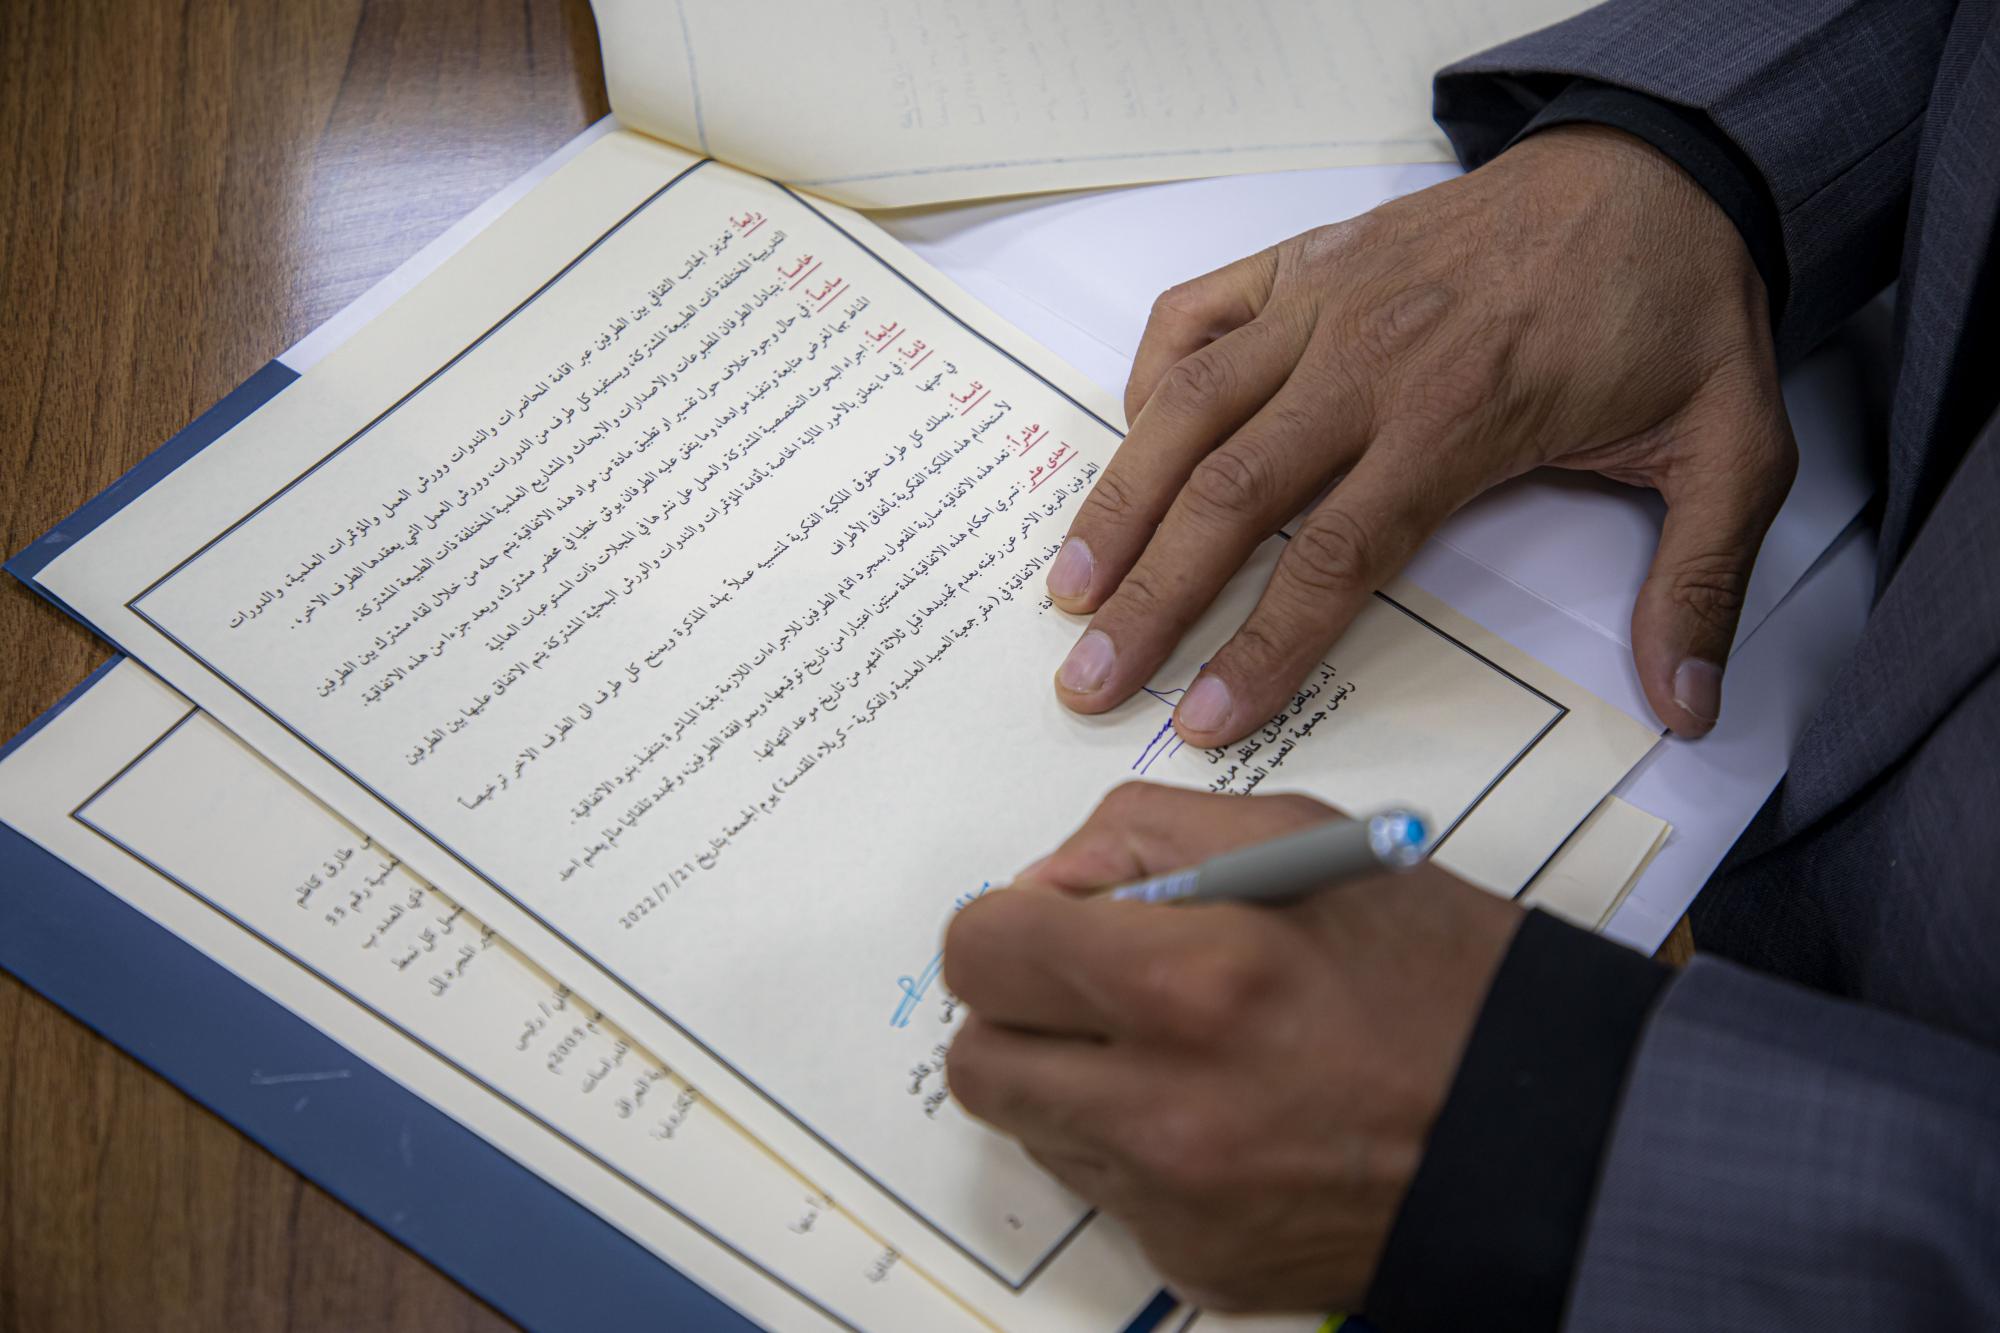 رابعاً: تعزيز الجانب الثقافي بين الطرفين عبر اقامة المحاضرات والندوات وورش العمل والمؤتمرات العلمية، والدورات
التدريبية المختلفة ذات الطبيعة المشتركة، ويستفيد كل طرف من الدورات، وورش العمل التي يعقدها الطرف الآخر.
خامساً: يتبادل الطرفان المطبوعات والاصدارات والابحاث والمشاريع العلمية المختلفة ذات الطبيعة المشتركة.
سادساً: في حال وجود خلاف حول تفسير او تطبيق مادة من مواد هذه الاتفاقية يتم حله من خلال لقاء مشترك بين الطرفين
المناط بهما لغرض متابعة وتنفيذ موادها، وما يتفق عليه الطرفان يوثق خطيا في محضر مشترك، ويعد جزءا من هذه الاتفاقية.
سابعاً: اجراء البحوث التخصصية المشتركة والعمل على نشرها في المجلات ذات المستوعبات العالمية
ثامناً: في ما يتعلق بالأمور المالية الخاصة بأقامة المؤتمرات والندوات والورش البحثية المشتركة يتم الاتفاق عليها بين الطرفين
في حينها
تاسعاً: يملك كل طرف حقوق الملكية الفكرية لمنتسبيه عملاً بهذه المذكرة ويمنح كل طرف الى الطرف الاخر ترخيصاً
لاستخدام هذه الملكية الفكرية بأتفاق الأطراف
عاشراً: تعد هذه الاتفاقية سارية المفعول بمجرد اتمام الطرفين للاجراءات اللازمة بغية المباشرة بتنفيذ بنود الاتفاقية.
احدى عشر: تسري احكام هذه الاتفاقية لمدة سنتين اعتبارا من تاريخ توقيعها، وبموافقة الطرفين، وتجدد تلقائيا مالم يعلم احد
الطرفين الفريق الاخر عن رغبته بعدم تجديدها قبل ثلاثة اشهر من تاريخ موعد انتهائها.
هذه الاتفاقية في (مقر جمعية العميد العلمية والفكرية - كربلاء المقدسة) يوم الجمعة بتاريخ 2022/7/21
أ.د. رياض طارق كاظم
رئيس جمعية العميد العلمية
2
طارق كاظم
رقم
كل
رئيس
2009م
الدراسات
العراق